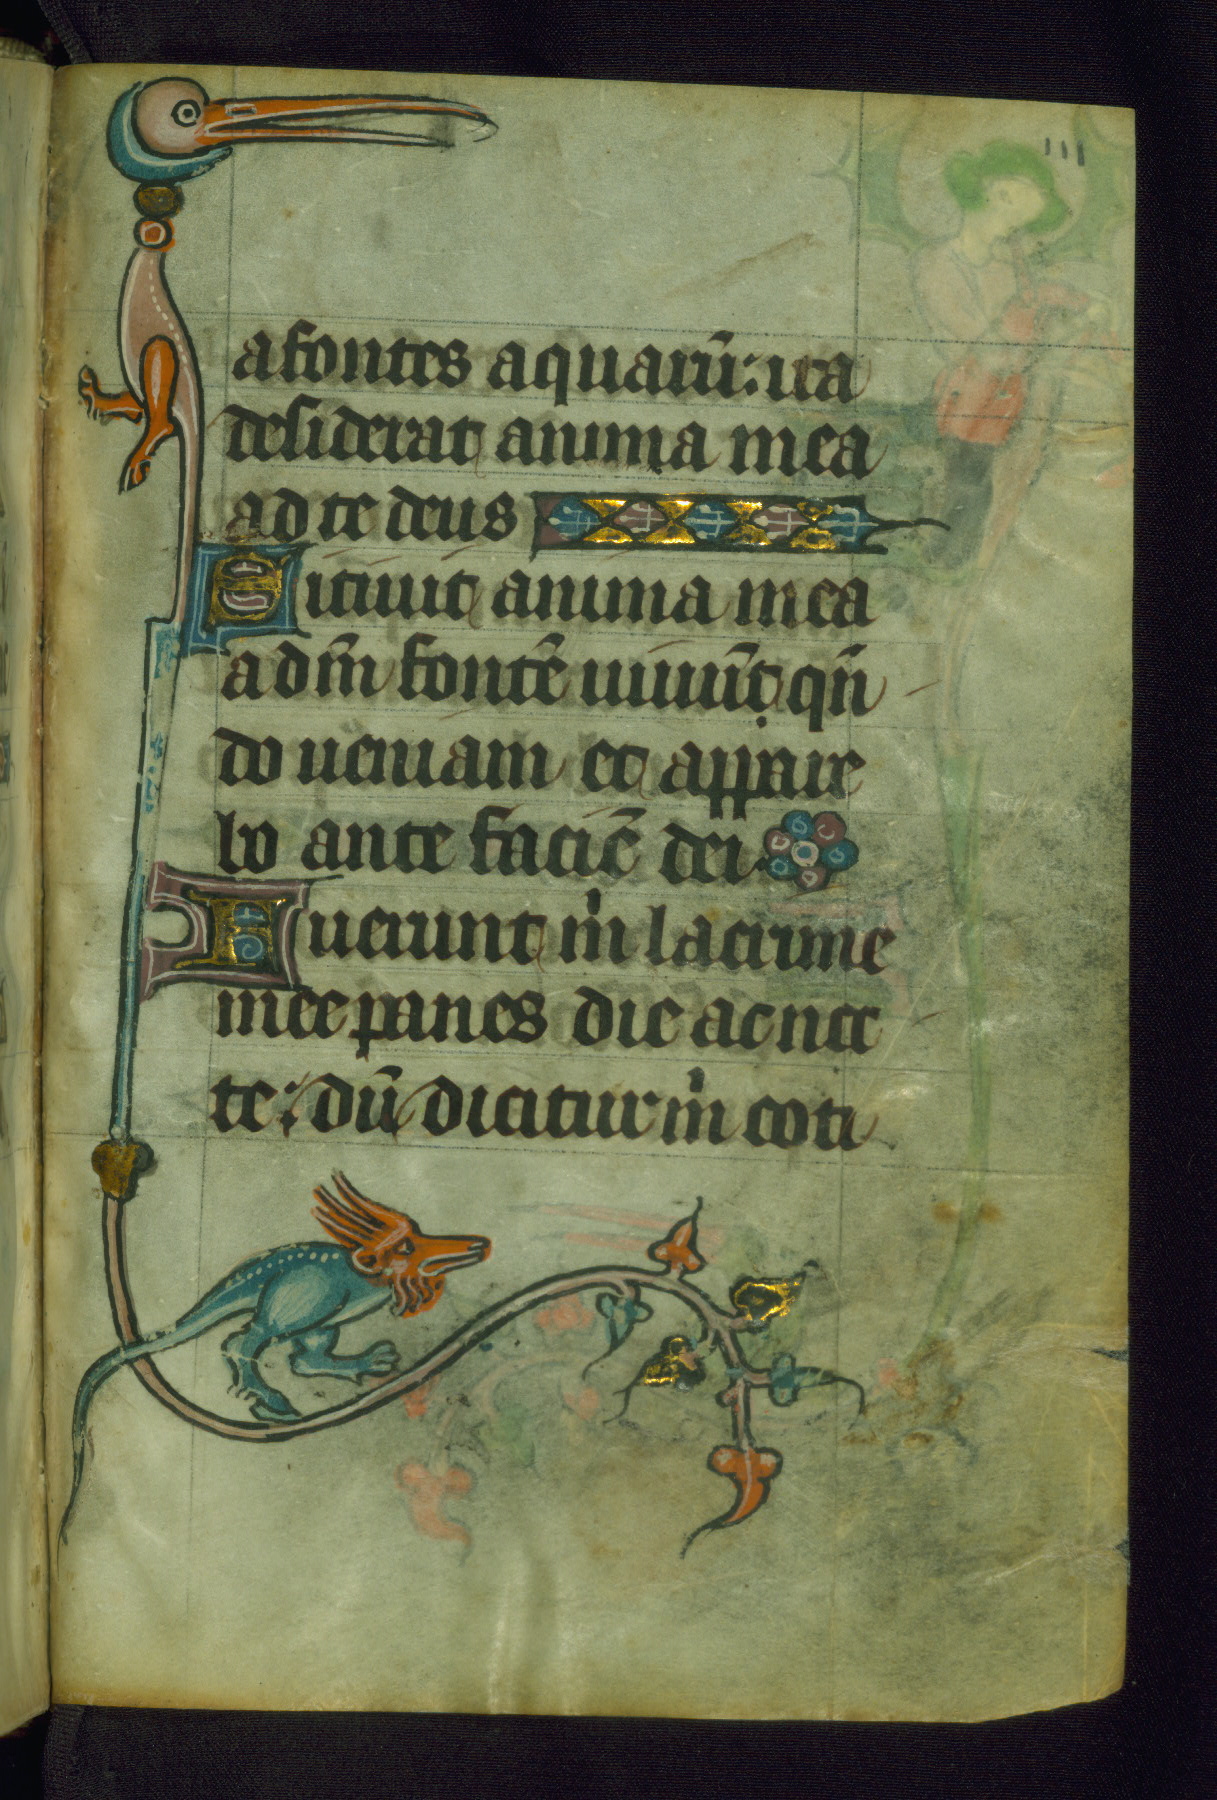 a fontes aquarū: ita
desiderat anima mea
ad te deus
Sitiuit anima mea
ad m̄ fontē uiuūt qn̄
do ueniam et appare
bo ante faciē dei
Fuerunt m̍ lacrime
mee panes die ac noc
te: dū dicitur m̍ coti